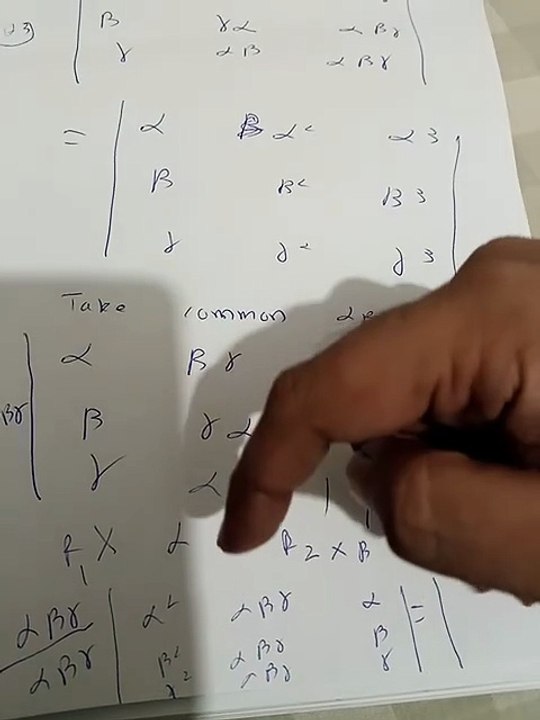 23)
β γα αβγ
γ αβ αβγ
= | α α² α³ |
β β² β³
γ γ² γ³
Take common
| α βγ
βγ | β γα
γ α 1
R₁ × α R₂ × β
αβγ | α² αβγ α | = |
αβγ | β² αβγ β
γ² αβγ γ